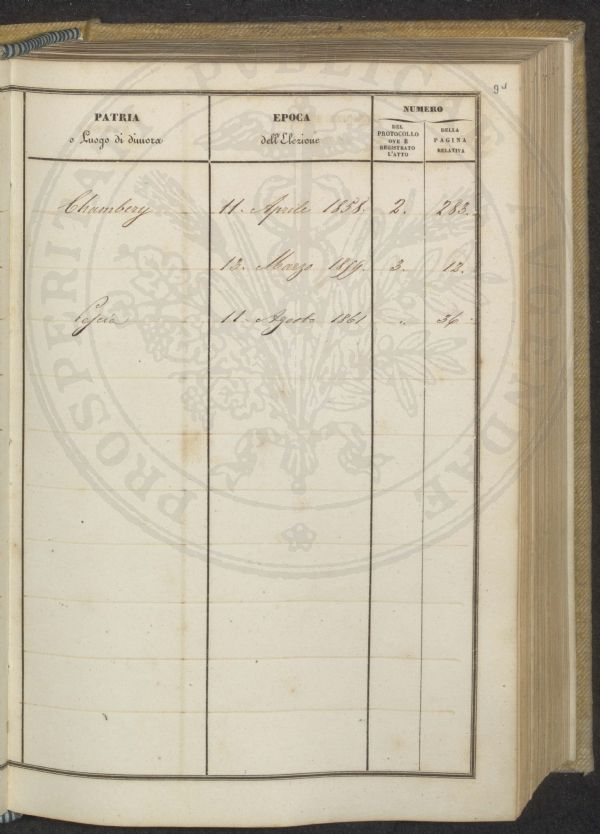 94
PATRIA
o Luogo di dimora
EPOCA
dell'Elezione
NUMERO
DEL
PROTOCOLLO
OVE È
REGISTRATO
L'ATTO
DELLA
PAGINA
RELATIVA
Chambery 11. Aprile 1858. 2. 283.
13. Marzo 1859. 3. 12.
Pescia 11 Agosto 1861 " 36
PROSPERITATI PUBLICAE AUGENDAE